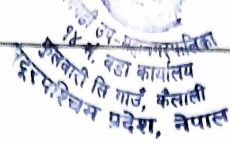 उप-महानगरपालिका
१४ नं. वडा कार्यालय
फूलबारी सि गाउँ, कैलाली
सुदूरपश्चिम प्रदेश, नेपाल